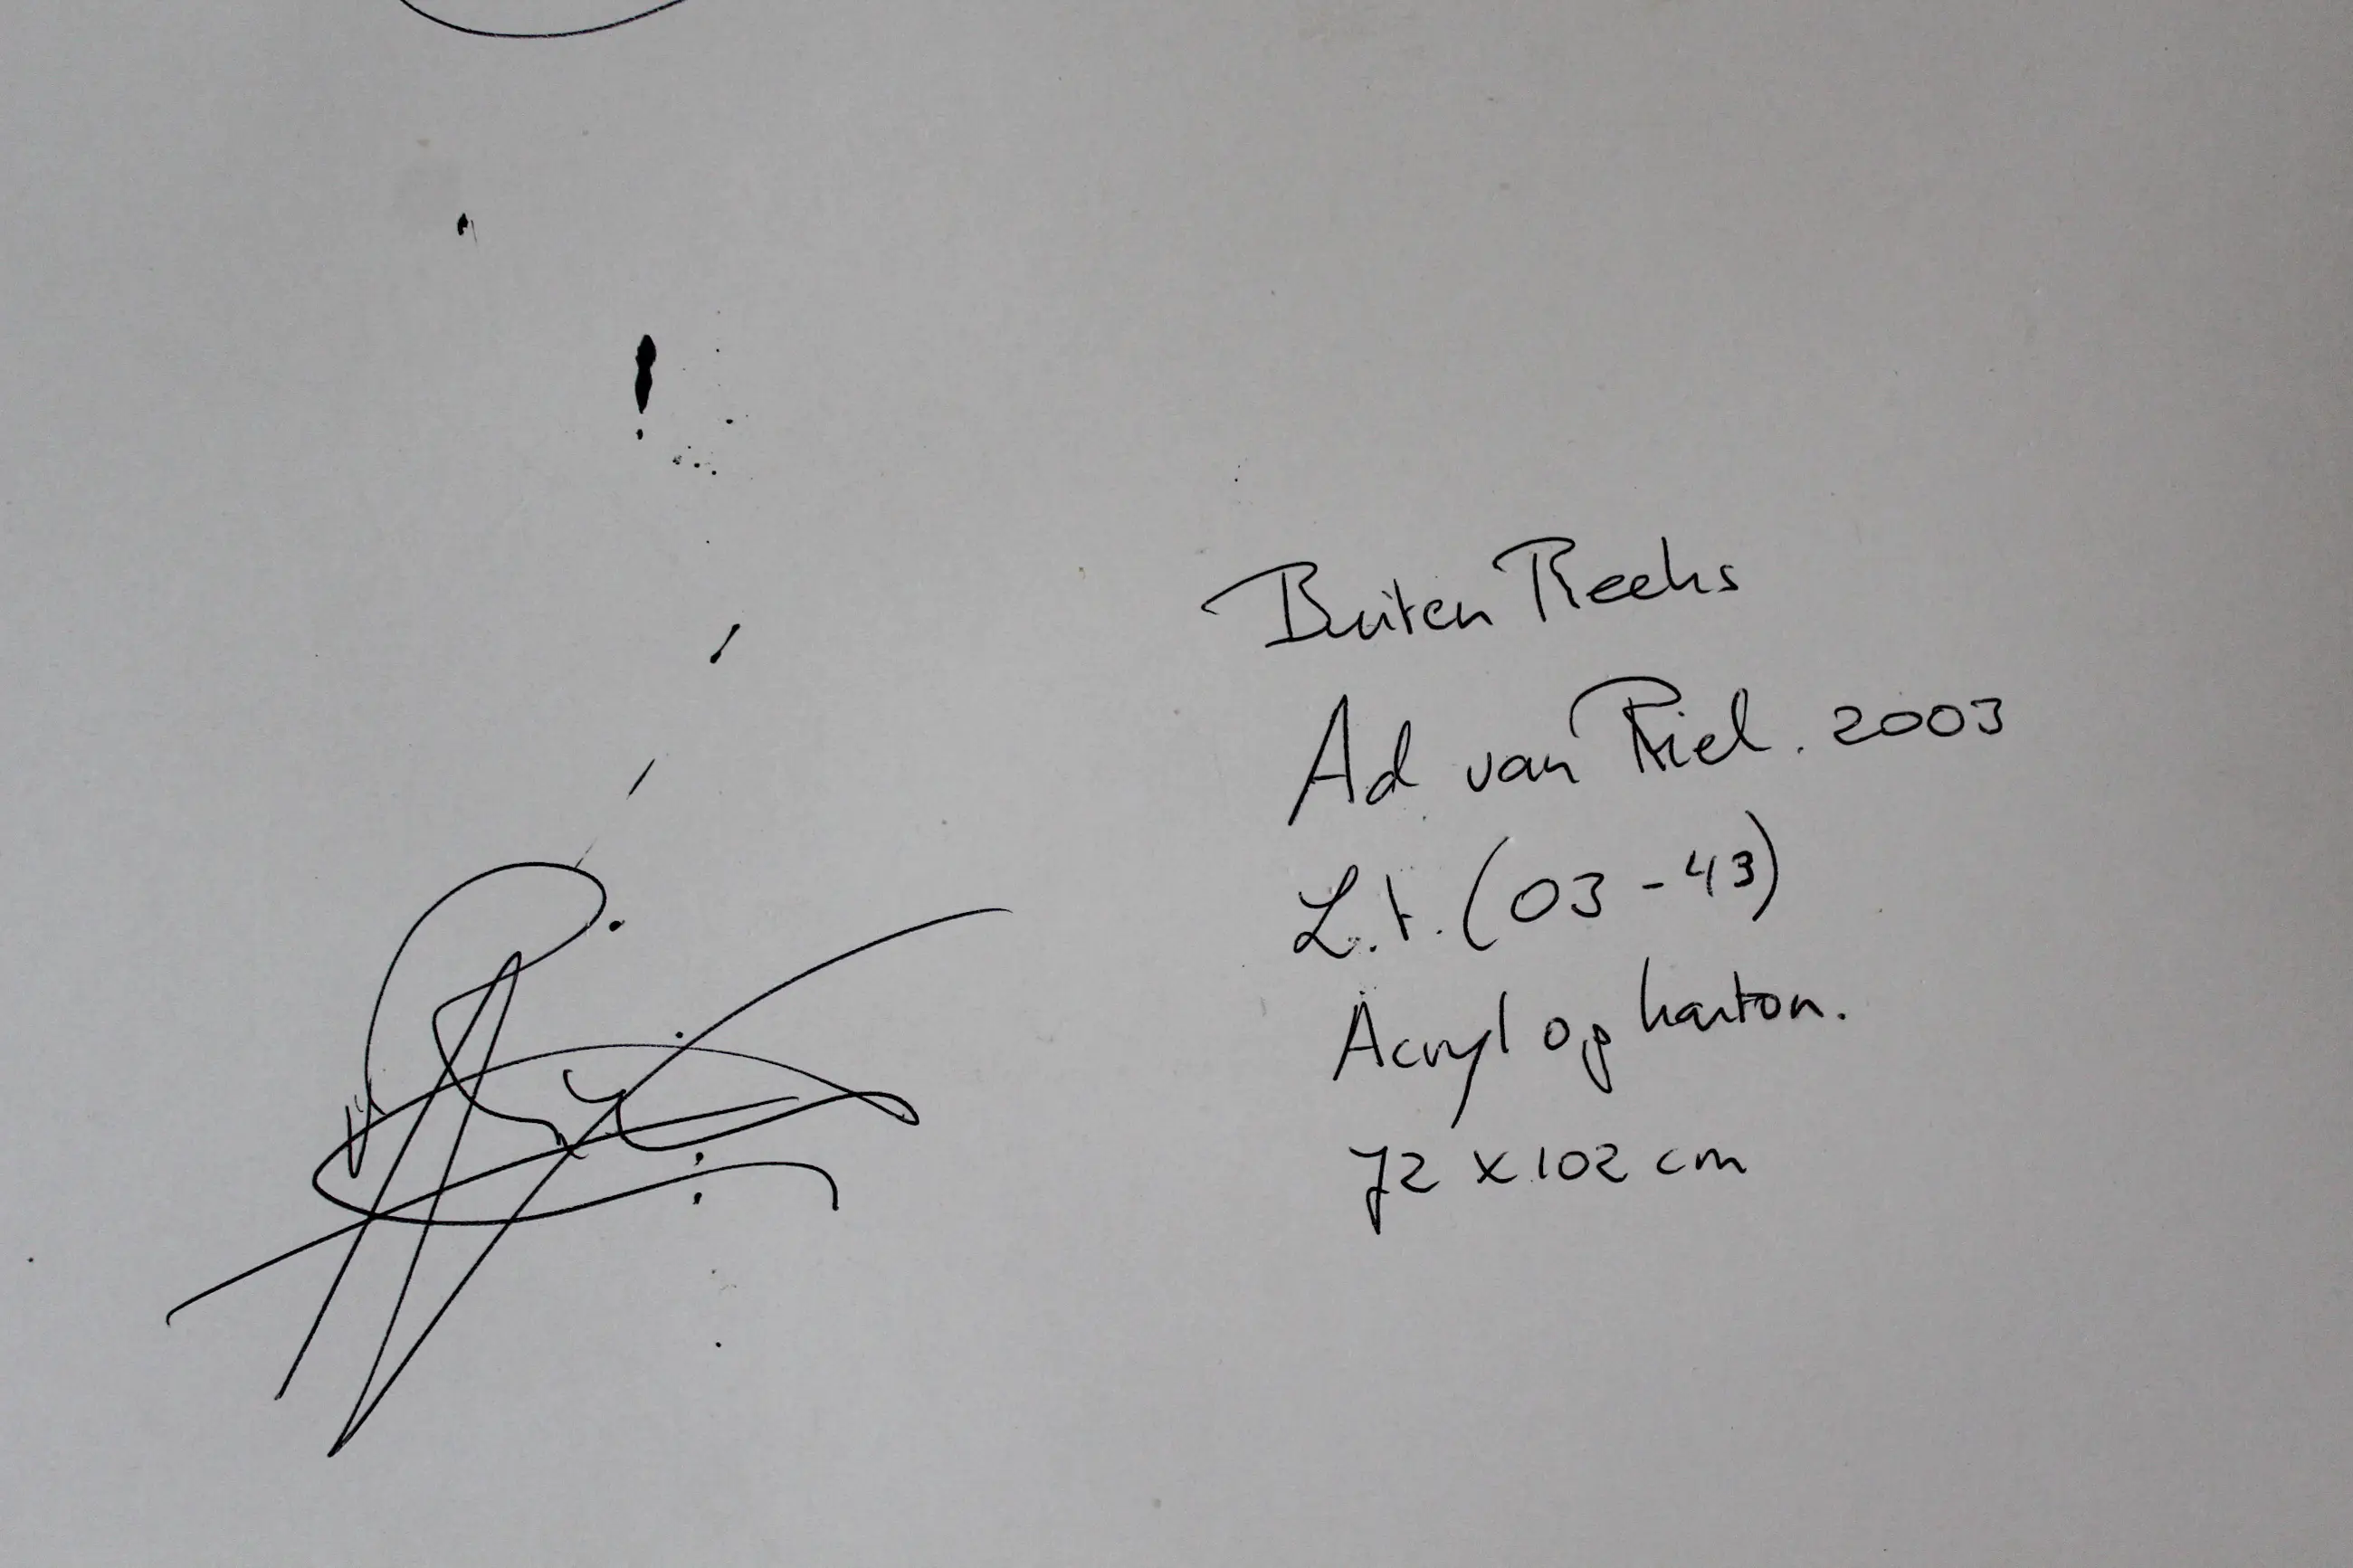 Buiten Reeks
Ad van Riel. 2003
Z.t. (03-43)
Acryl op karton.
72 x 102 cm